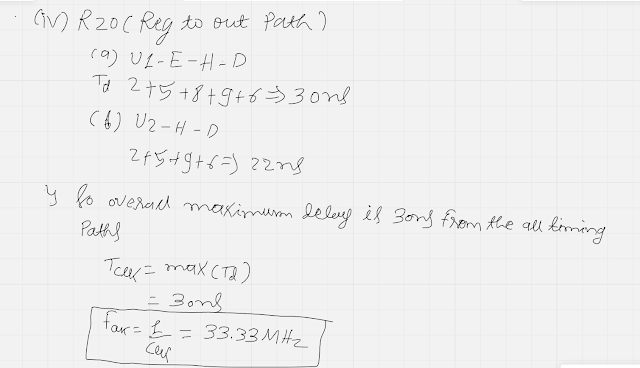 (iv) R20 (Reg to out Path)
(a) U1-E-H-D
Td 2+5+8+9+6 ⇒ 30ns
(b) U2-H-D
2+5+9+6 ⇒ 22ns
So overall maximum delay is 30ns from the all timing
Paths
Tclk = max(Td)
= 30ns
fclk = 1/Clk = 33.33 MHz